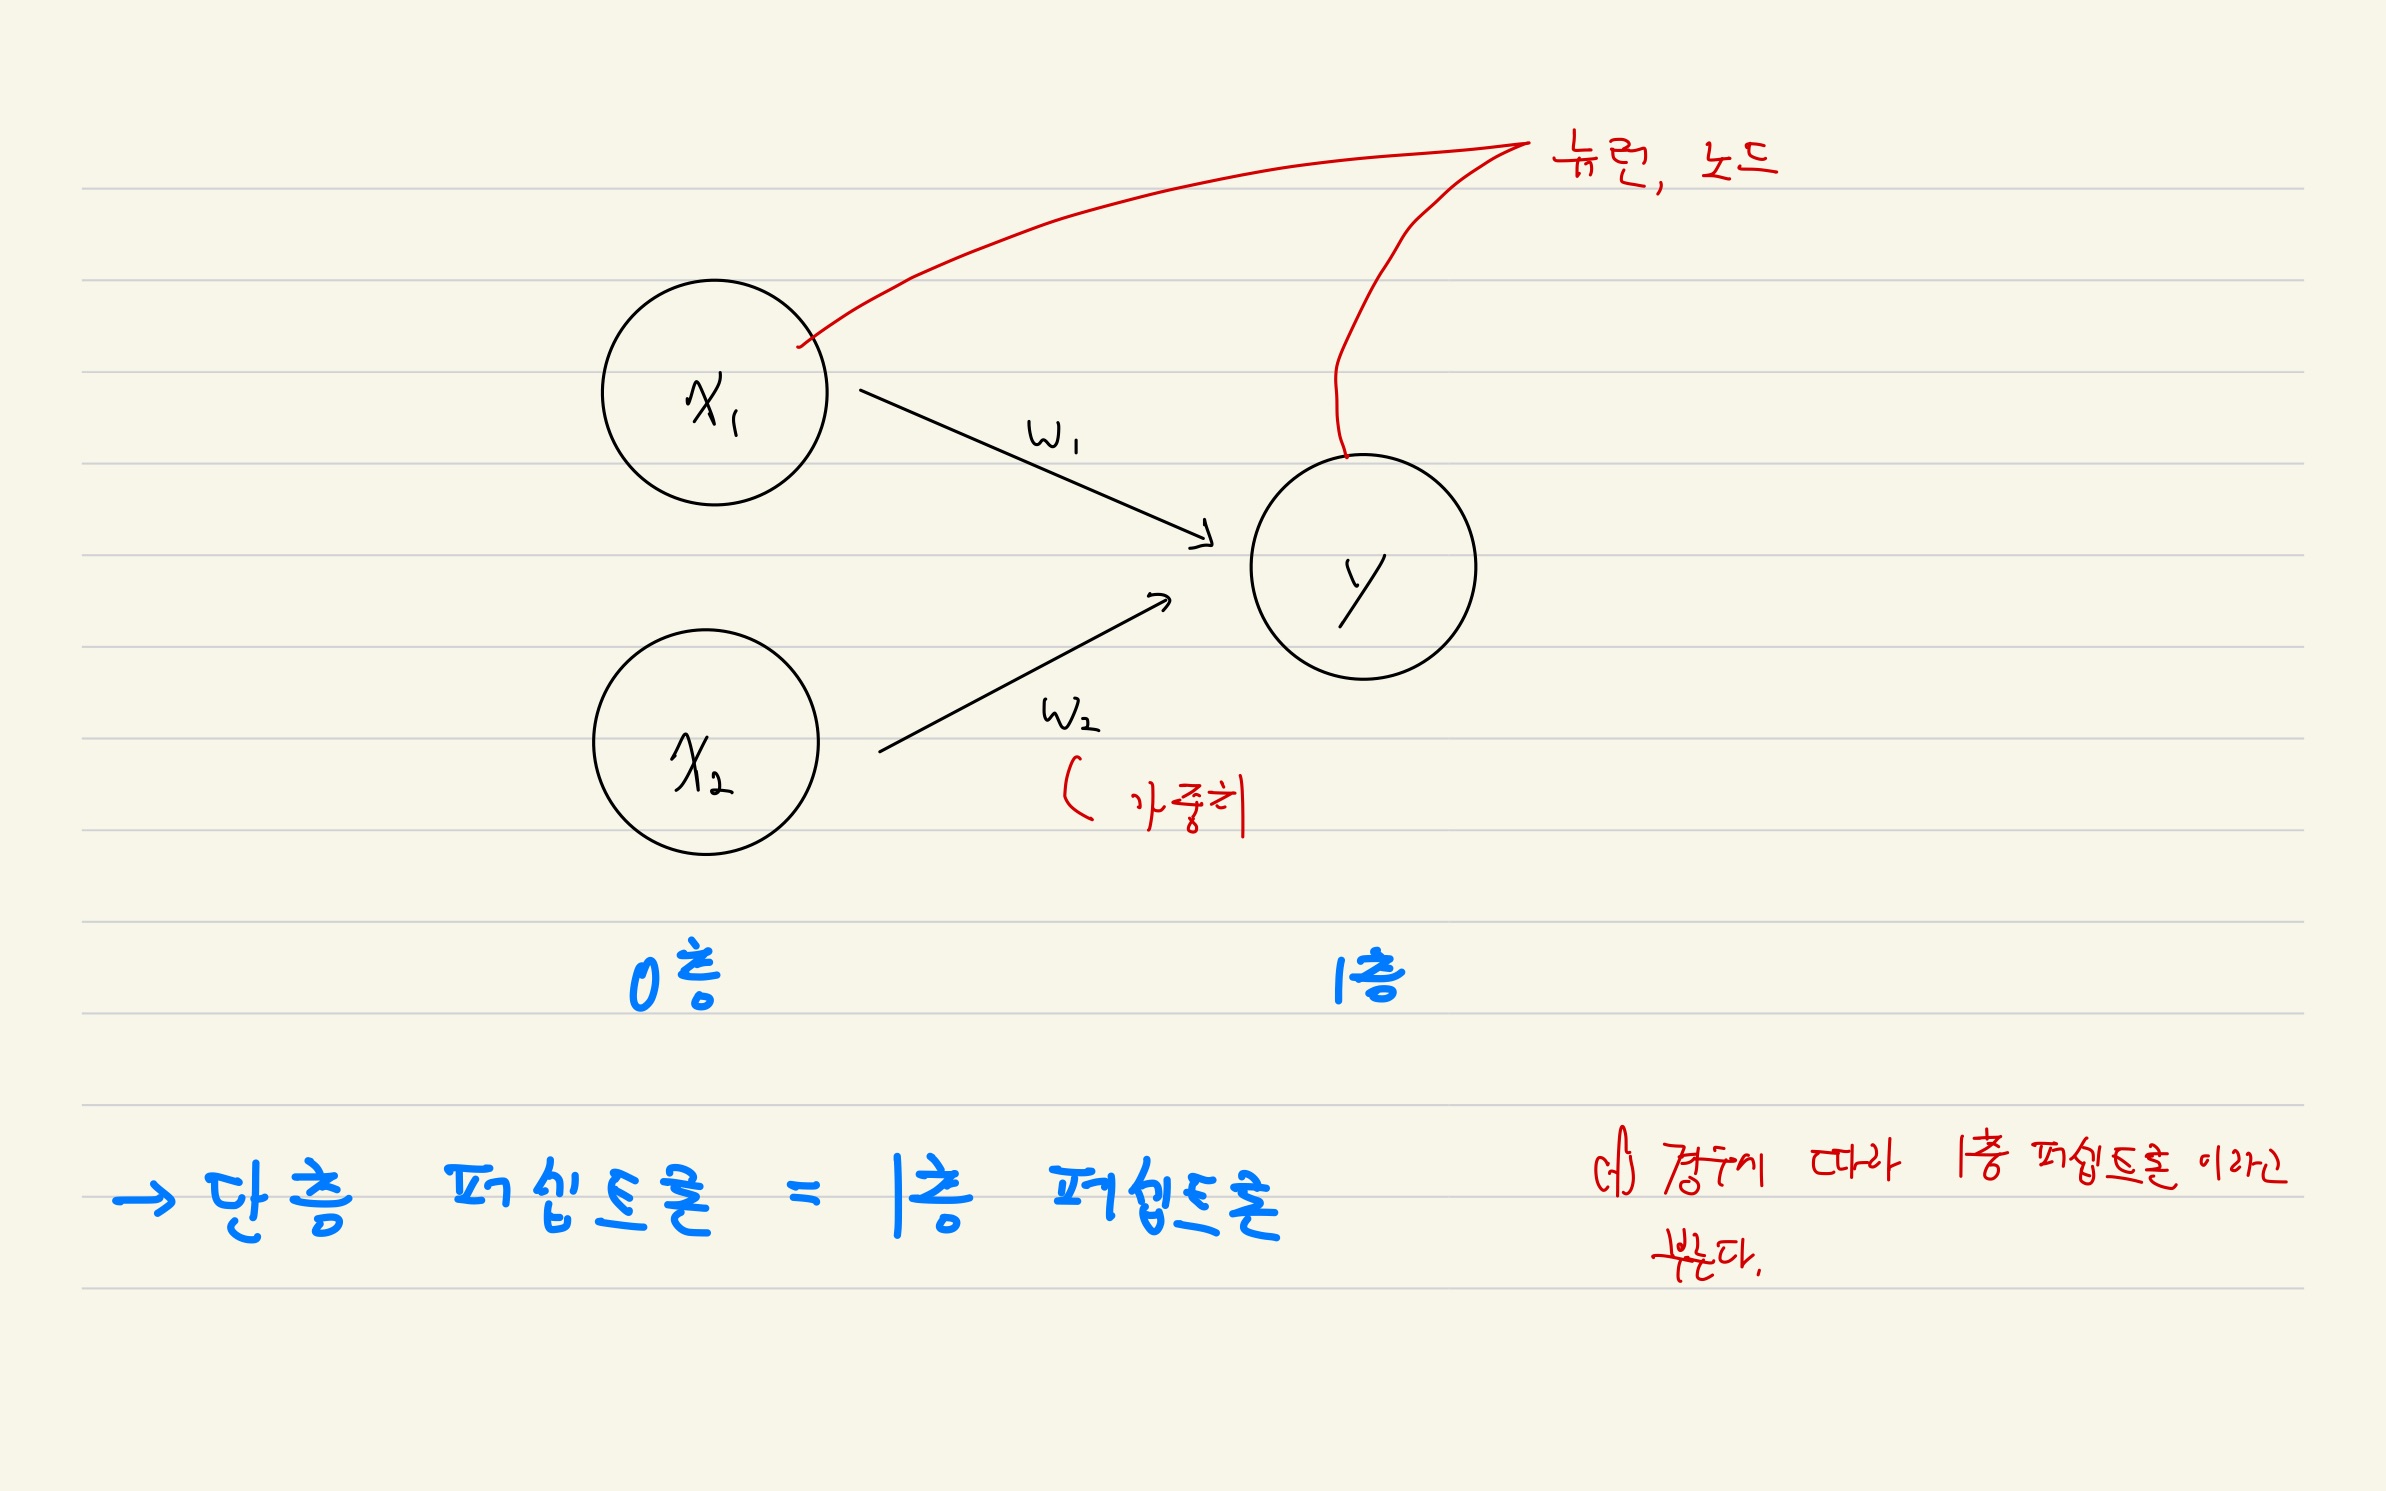 뉴런, 노드
x₁
w₁
y
x₂
w₂
가중치
0층
1층
→ 단층 퍼셉트론 = 1층 퍼셉트론
에 따라 1층 퍼셉트론 이라고
부른다.